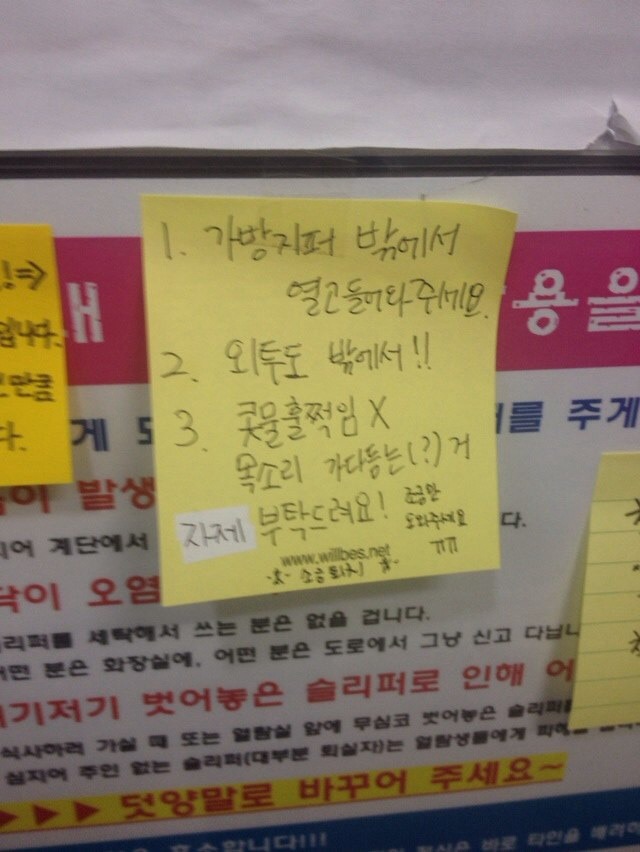 1. 가방지퍼 밖에서
열고들어와주세요.
2. 외투도 밖에서!!
3. 콧물훌쩍임 X
목소리 가다듬는(?)거
자제 부탁드려요! 조금만
도와주세요
ㅠㅠ
www.willbes.net
소음퇴치
!⇒
입니다.
만큼
다.
용을
게
를 주게
이 발생
계단에서
다.
이 오염
리퍼를 세탁해서 쓰는 분은 없을 겁니다.
어떤 분은 화장실에, 어떤 분은 도로에서 그냥 신고 다닙니
여기저기 벗어놓은 슬리퍼로 인해 어
식사하러 가실 때 또는 열람실 앞에 무심코 벗어놓은 슬리퍼
심지어 주인 없는 슬리퍼(대부분 퇴실자)는 열람생들에게 피해
▶▶▶ 덧양말로 바꾸어 주세요~
합니다!!!
바로 타인을 배려하